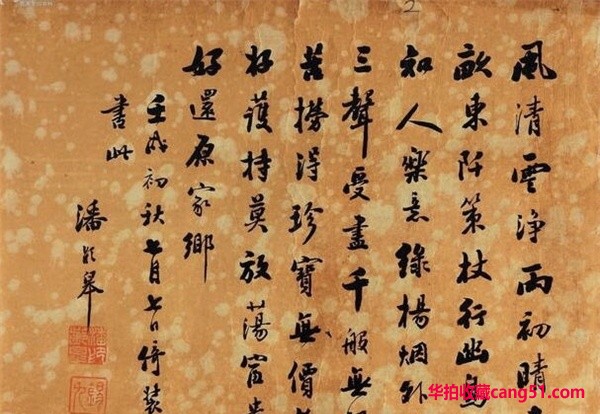 風清雲淨雨初晴
畝東阡策杖行幽鳥
知人樂意綠楊烟外
三聲受盡千般無
苦撈得珍寶無價
好護持莫放蕩富貴
好還原家鄉
壬戌初秋七月七日倚裝
書此
潘齡皋
2
华拍收藏cang51.com